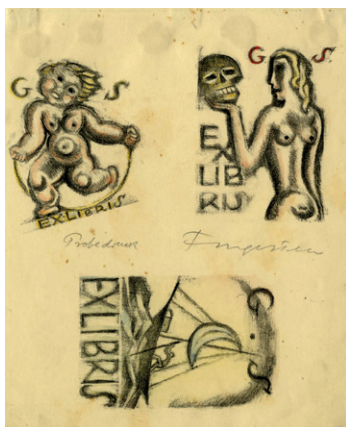 G S
EXLIBRIS
G S
EX
LIB
RIS
Probedruck
Fingesten
EXLIBRIS
G.S